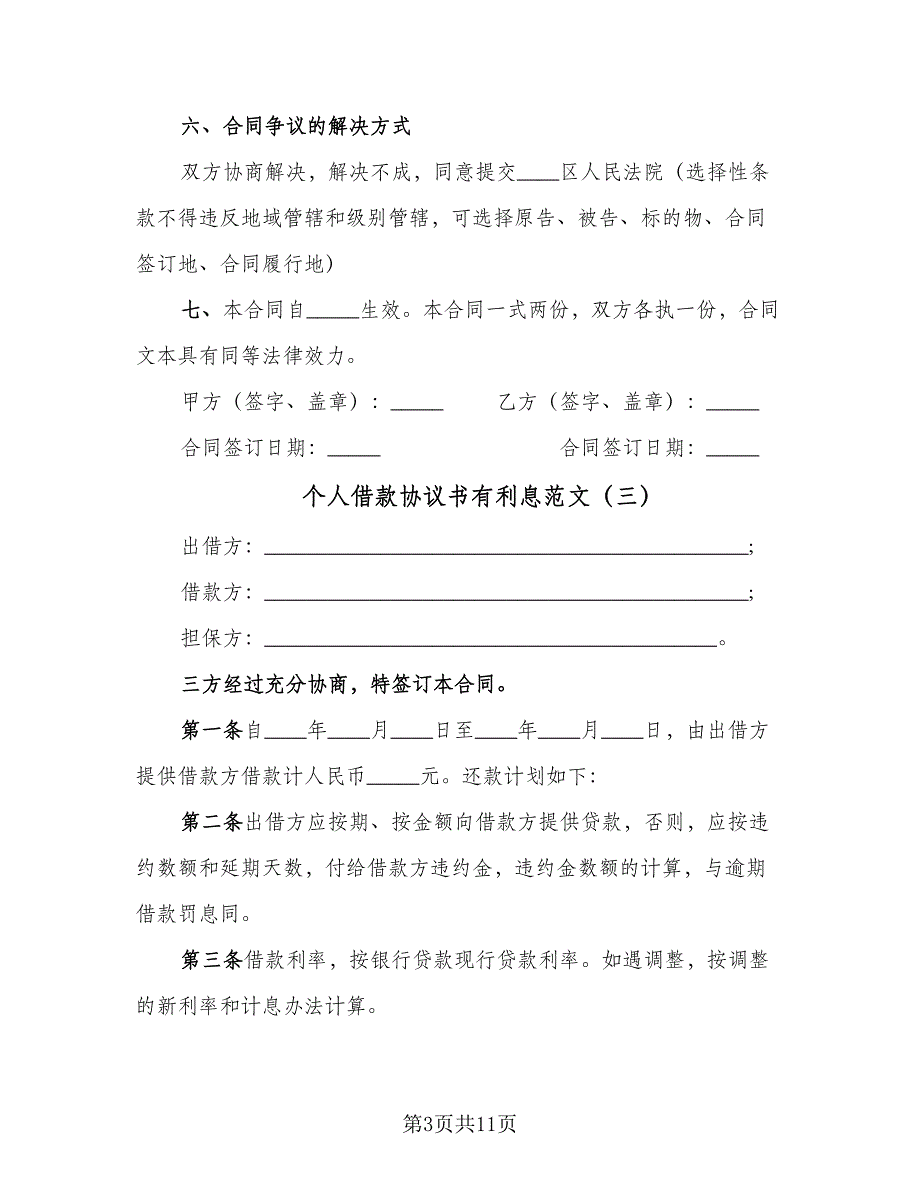 六、合同争议的解决方式
双方协商解决，解决不成，同意提交____区人民法院（选择性条
款不得违反地域管辖和级别管辖，可选择原告、被告、标的物、合同
签订地、合同履行地）
七、本合同自_____生效。本合同一式两份，双方各执一份，合同
文本具有同等法律效力。
甲方（签字、盖章）：_____ 乙方（签字、盖章）：_____
合同签订日期：_____ 合同签订日期：_____
个人借款协议书有利息范文（三）
出借方：______________________________________________;
借款方：______________________________________________;
担保方：___________________________________________。
三方经过充分协商，特签订本合同。
第一条自____年____月____日至____年____月____日，由出借方
提供借款方借款计人民币_____元。还款计划如下：
第二条出借方应按期、按金额向借款方提供贷款，否则，应按违
约数额和延期天数，付给借款方违约金，违约金数额的计算，与逾期
借款罚息同。
第三条借款利率，按银行贷款现行贷款利率。如遇调整，按调整
的新利率和计息办法计算。
第3页共11页